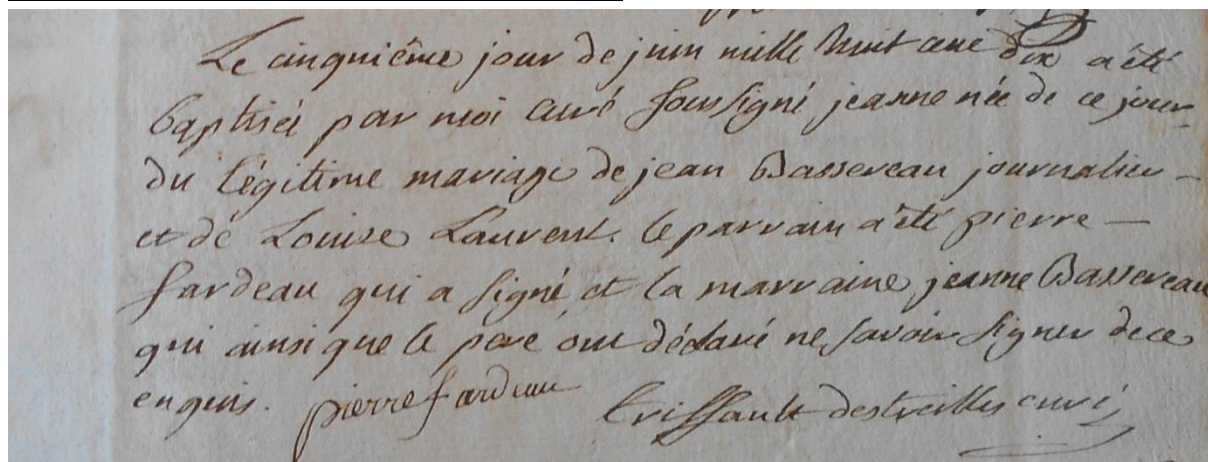 Le cinquiême jour de juin mille huit cent dix a été
baptisée par moi curé soussigné jeanne née de ce jour
du légitime mariage de jean Bassereau journalier –
et de Louise Laurent. le parrain a été pierre –
fardeau qui a signé et la marraine jeanne Bassereau
qui ainsi que le pere ont déclaré ne savoir signer de ce
enquis. pierre fardeau
Triffault destreilles curé